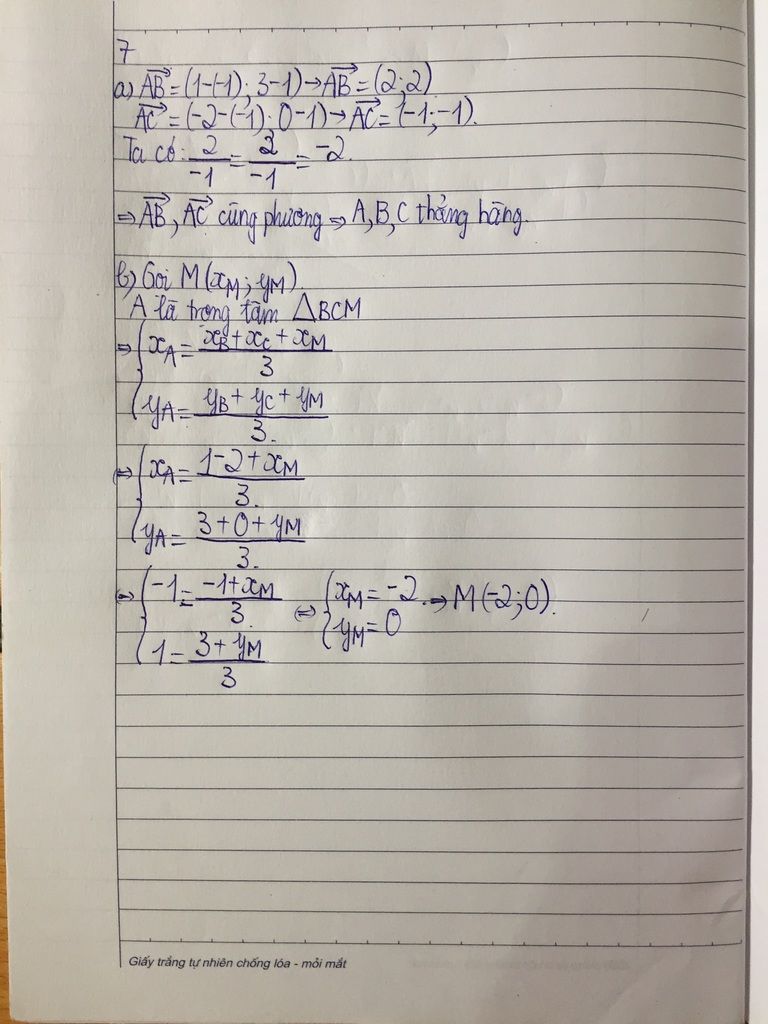 7
a) AB⃗ = (1-(-1); 3-1) → AB⃗ = (2; 2)
AC⃗ = (-2-(-1); 0-1) → AC⃗ = (-1; -1).
Ta có: 2/-1 = 2/-1 = -2.
⇒ AB⃗, AC⃗ cùng phương ⇒ A, B, C thẳng hàng.
b) Gọi M(x_M; y_M).
A là trọng tâm △BCM
⇒ { x_A = (x_B + x_C + x_M)/3
y_A = (y_B + y_C + y_M)/3.
⇔ { x_A = (1-2+x_M)/3.
y_A = (3+0+y_M)/3.
⇔ { -1 = (-1+x_M)/3 ⇔ { x_M = -2. ⇒ M(-2; 0).
y_M = 0
1 = (3+y_M)/3
Giấy trắng tự nhiên chống lóa - mỏi mắt